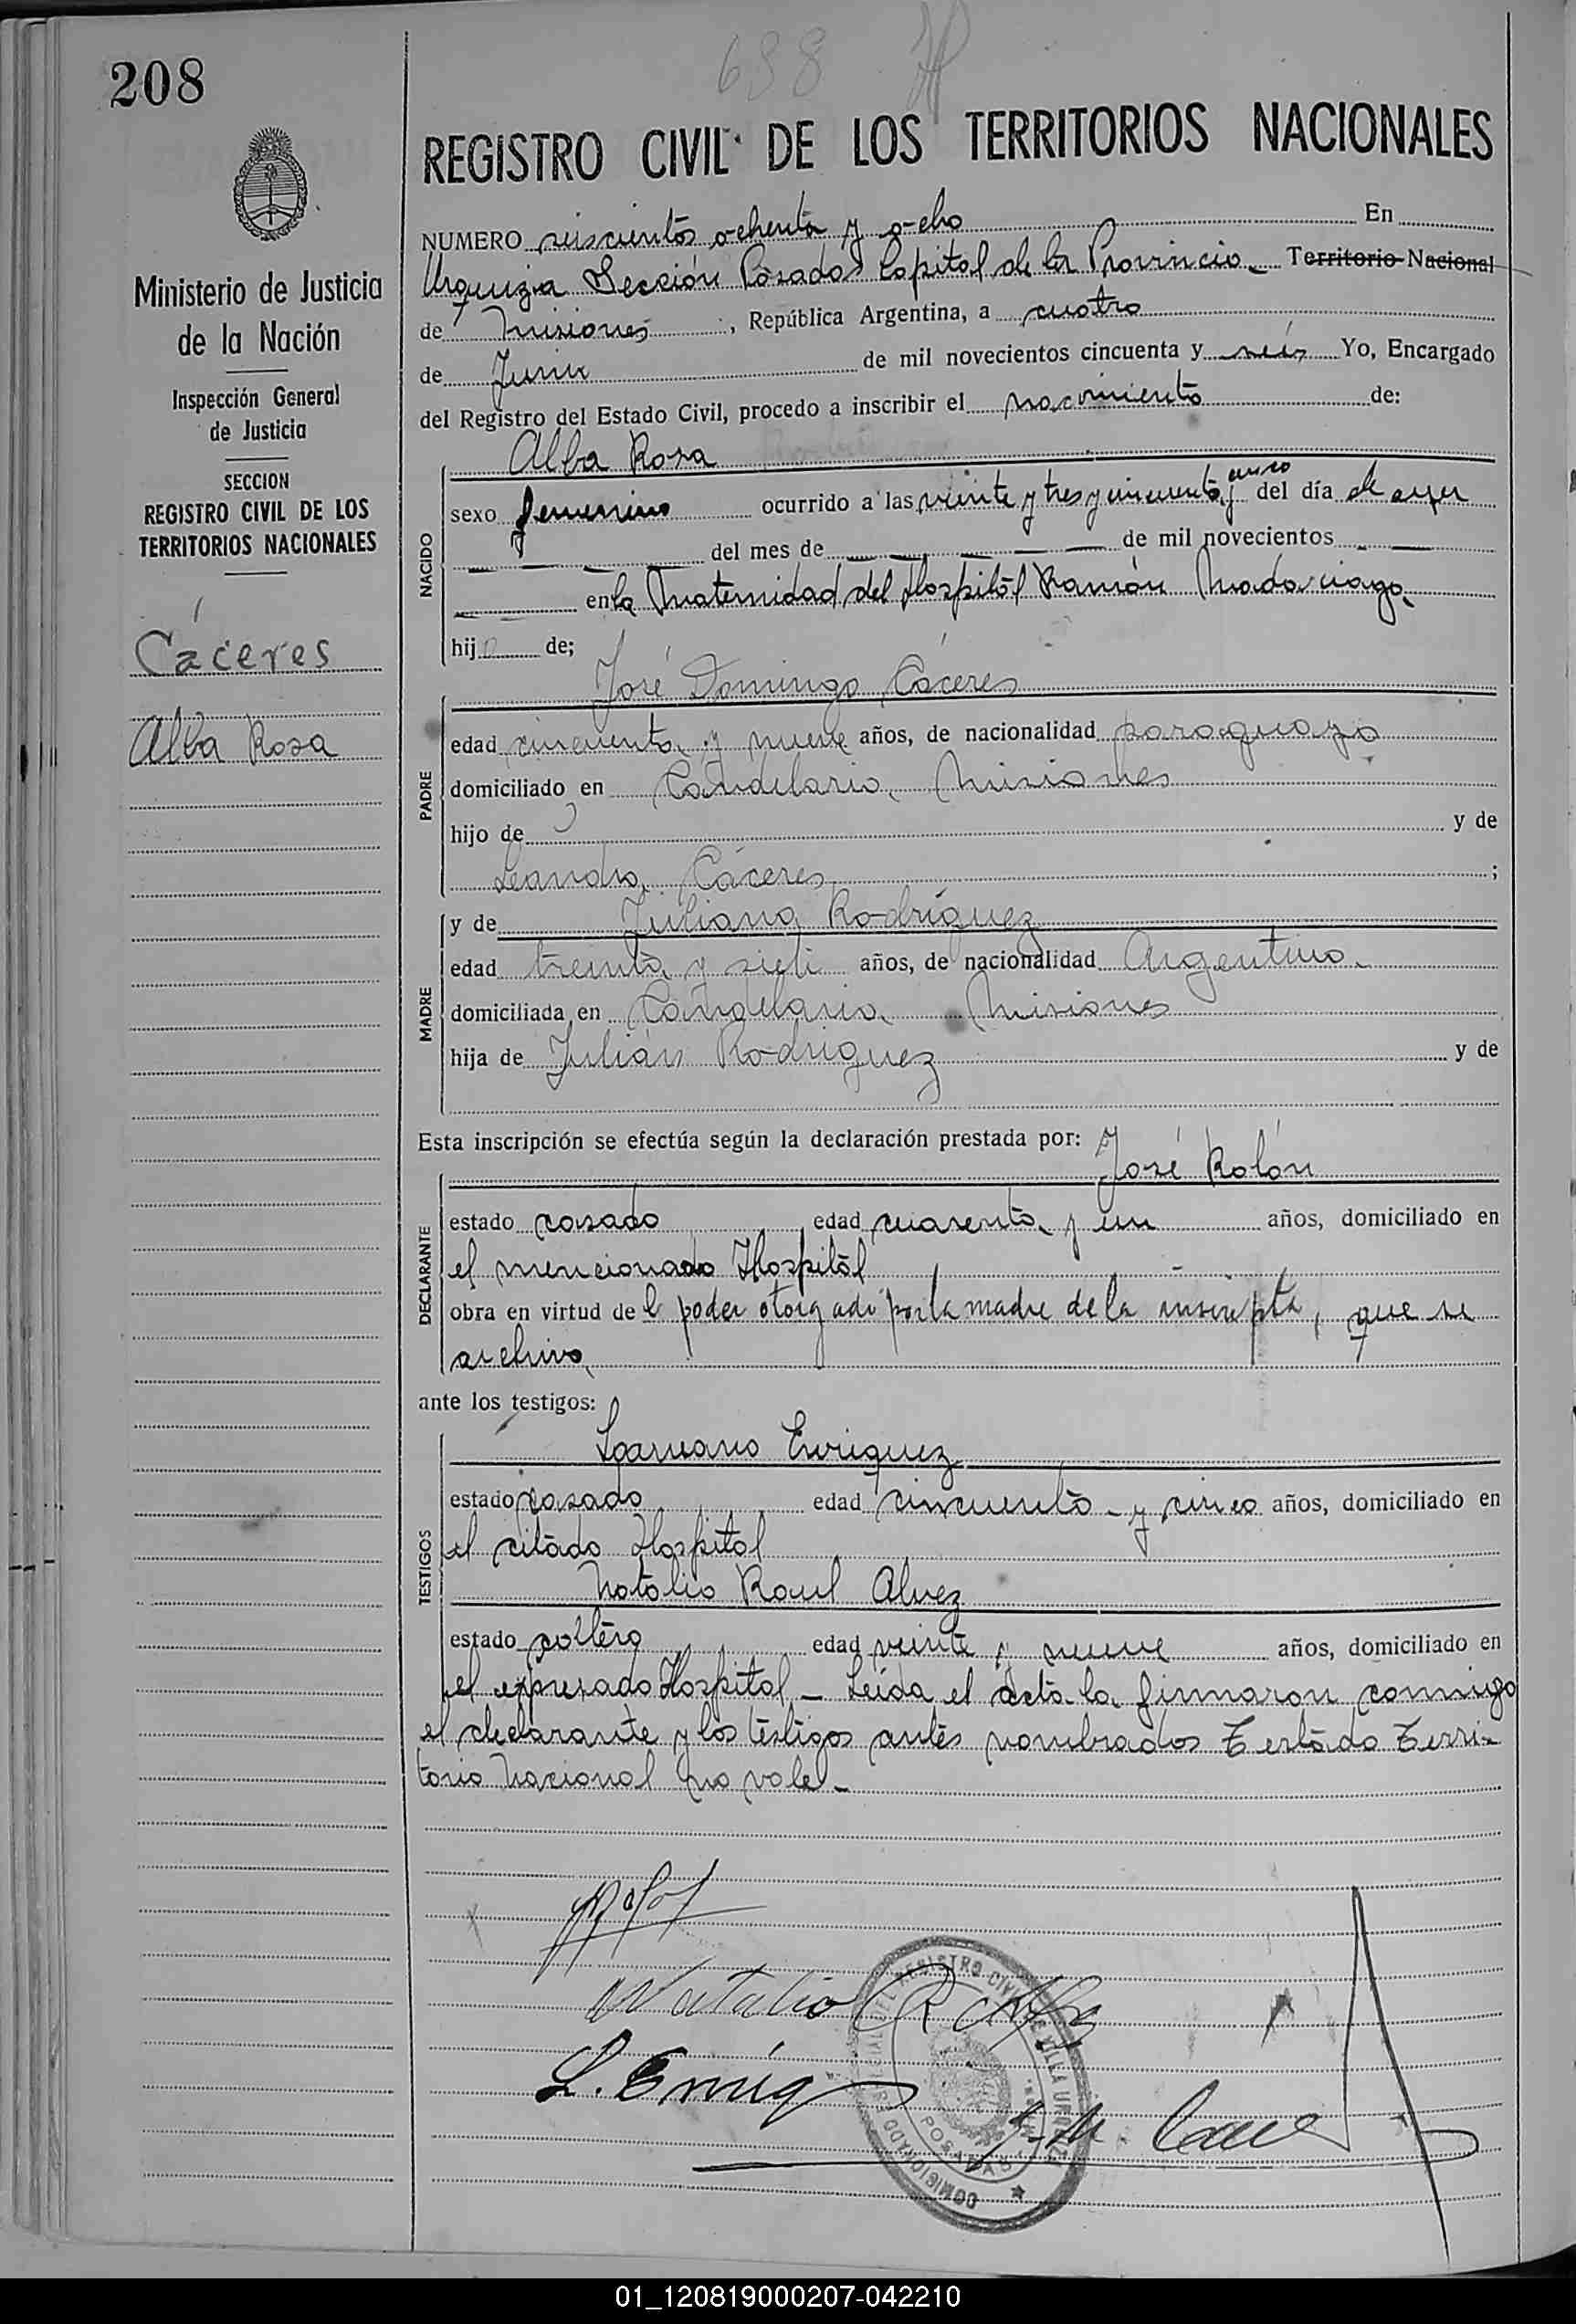 208
688
REGISTRO CIVIL DE LOS TERRITORIOS NACIONALES
NUMERO seiscientos ochenta y ocho En
Urquiza Sección Posadas Capital de la Provincia Territorio Nacional
de Misiones, República Argentina, a cuatro
de Junio de mil novecientos cincuenta y seis Yo, Encargado
del Registro del Estado Civil, procedo a inscribir el nacimiento de:
Alba Rosa
NACIDO
sexo femenino ocurrido a las veinte y tres y cincuenta y cinco del día de ayer
del mes de de mil novecientos
en la Maternidad del Hospital Ramón Madariaga
hija de;
José Domingo Cáceres
PADRE
edad cincuenta y nueve años, de nacionalidad paraguaya
domiciliado en Candelaria, Misiones
hijo de y de
Leandra Cáceres ;
y de Juliana Rodríguez
MADRE
edad treinta y siete años, de nacionalidad Argentina
domiciliada en Candelaria Misiones
hija de Julián Rodríguez y de
Esta inscripción se efectúa según la declaración prestada por:
José Rolón
DECLARANTE
estado casado edad cuarenta y un años, domiciliado en
el mencionado Hospital
obra en virtud del poder otorgado por la madre de la inscripta, que se
archiva
ante los testigos:
Enriquez
TESTIGOS
estado casado edad cincuenta y cinco años, domiciliado en
el citado Hospital
Natalio Raul Alvez
estado soltero edad veinte y nueve años, domiciliado en
el expresado Hospital - Leída el acta la firmaron conmigo
el declarante y los testigos antes nombrados Testado Terri-
torio Nacional no vale -
Natalio R
L. Enriq
COMISIONADO
POSADAS
Ministerio de Justicia
de la Nación
Inspección General
de Justicia
SECCION
REGISTRO CIVIL DE LOS
TERRITORIOS NACIONALES
Cáceres
Alba Rosa
01_120819000207-042210